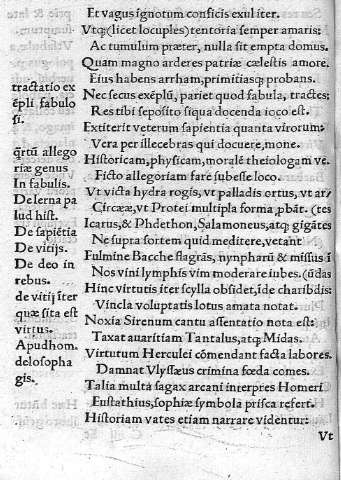 Et vagus ignotum conficis exul iter.
Vtq;(licet locuples) tentoria semper amaris:
Ac tumulum præter, nulla sit empta domus.
Quam magno arderes patriæ cælestis amore.
Eius habens arrham, primitiasq; probans.
tractatio exẽpli fabulosi.
Nec secus exẽplũ, pariet quod fabula, tractes:
Res tibi seposito siqua docenda ioco est.
Extiterit veterum sapientia quanta virorum:
Vera per illecebras qui docuere, mone.
q̃rtũ allegoriæ genus In fabulis.
Historicam, physicam, moralẽ theiologam ve.
Ficto allegoriam fare subesse loco.
De lerna palud hist.
Vt victa hydra rogis, vt palladis ortus, vt ar/
Circææ, vt Protei multipla forma, ꝓbãt. (tes
De sapiẽtia
Icarus, & Phaethon, Salamoneus, atq; gigãtes
De vitijs.
Ne supra sortem quid meditere, vetant
De deo in rebus.
Fulmine Bacche flagrãs, nynpharũ & missus ĩ
Nos vini lymphis vim moderare iubes. (ũdas
de vitij iter quæ sita est virtus.
Hinc virtutis iter scylla obsidet, ĩde charibdis:
Vincla voluptatis lotus amata notat.
Noxia Sirenum cantu assentatio nota est:
Apud hom. de losophagis.
Taxat auaritiam Tantalus, atq; Midas.
Virtutum Herculei cõmendant facta labores.
Damnat Vlyssæus crimina fœda comes.
Talia multa sagax arcani interpres Homeri
Eustathius, sophiæ symbola prisca refert.
Historiam vates etiam narrare videntur:
Vt